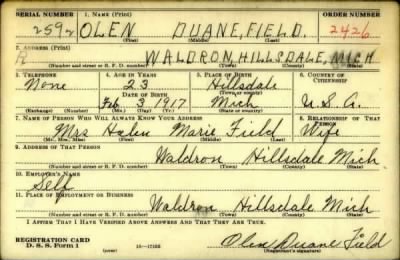 SERIAL NUMBER 1. Name (Print) ORDER NUMBER
2592 OLEN DUANE, FIELD. 2426
(First) (Middle) (Last)
2. Address (Print)
R WALDRON, HILLSDALE, MICH
(Number and street or R. F. D. number) (Town) (County) (State)
3. Telephone 4. Age in Years 5. Place of Birth 6. Country of Citizenship
None 23 Hillsdale
Date of Birth (Town or county)
Feb. 3 1917 Mich U.S.A.
(Exchange) (Number) (Mo.) (Day) (Yr.) (State or country)
7. Name of Person Who Will Always Know Your Address 8. Relationship of That Person
Mrs Helen Marie Field Wife
(Mr., Mrs., Miss) (First) (Middle) (Last)
9. Address of That Person
Waldron Hillsdale Mich
(Number and street or R. F. D. number) (Town) (County) (State)
10. Employer's Name
Self
11. Place of Employment or Business
Waldron Hillsdale Mich
(Number and street or R. F. D. number) (Town) (County) (State)
I Affirm That I Have Verified Above Answers and That They Are True.
REGISTRATION CARD
D. S. S. Form 1 16—17105 Olen Duane Field
(Registrant's signature)